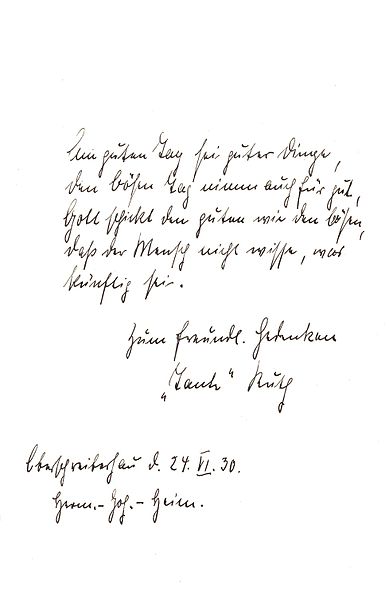 Am guten Tag sei guter Dinge,
den bösen Tag nimm auch für gut,
Gott schickt den guten wie den bösen,
daß der Mensch nicht wisse, was
künftig sei.
Zum freundl. Gedenken
„Tante“ Ruth
Oberschreiberhau d. 24. VI. 30.
Herm.-Joh.-Heim.